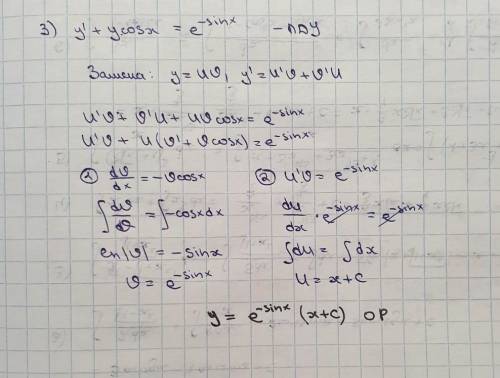 3) y' + y cosx = e^{-sinx} - ЛДУ
Замена: y = uϑ, y' = u'ϑ + ϑ'u
u'ϑ + ϑ'u + uϑ cosx = e^{-sinx}
u'ϑ + u(ϑ' + ϑcosx) = e^{-sinx}
① dϑ/dx = -ϑcosx
∫ dϑ/ϑ = ∫ -cosxdx
ln|ϑ| = -sinx
ϑ = e^{-sinx}
② u'ϑ = e^{-sinx}
du/dx · e^{-sinx} = e^{-sinx}
∫du = ∫dx
u = x+C
y = e^{-sinx} (x+C) ОР